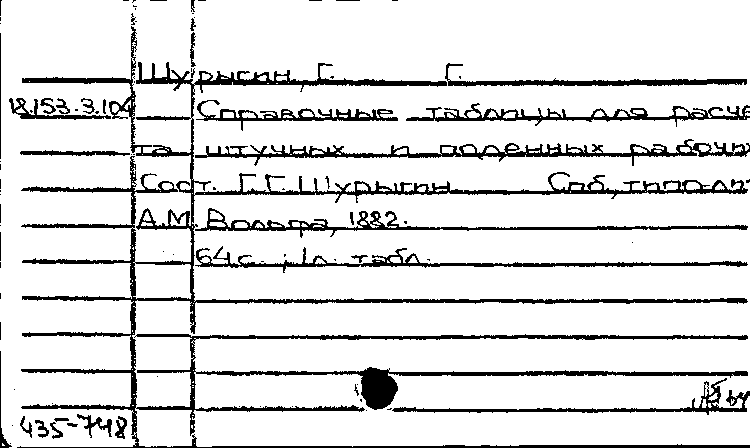 Шурыгин, Г. Г.
18.153.3.104 Справочные таблицы для расче
та штучных и поденных рабочих
Сост. Г.Г. Шурыгин Спб, типо-лит
А.М. Вольфа, 1882.
64 с., 1 л. табл.
435-748